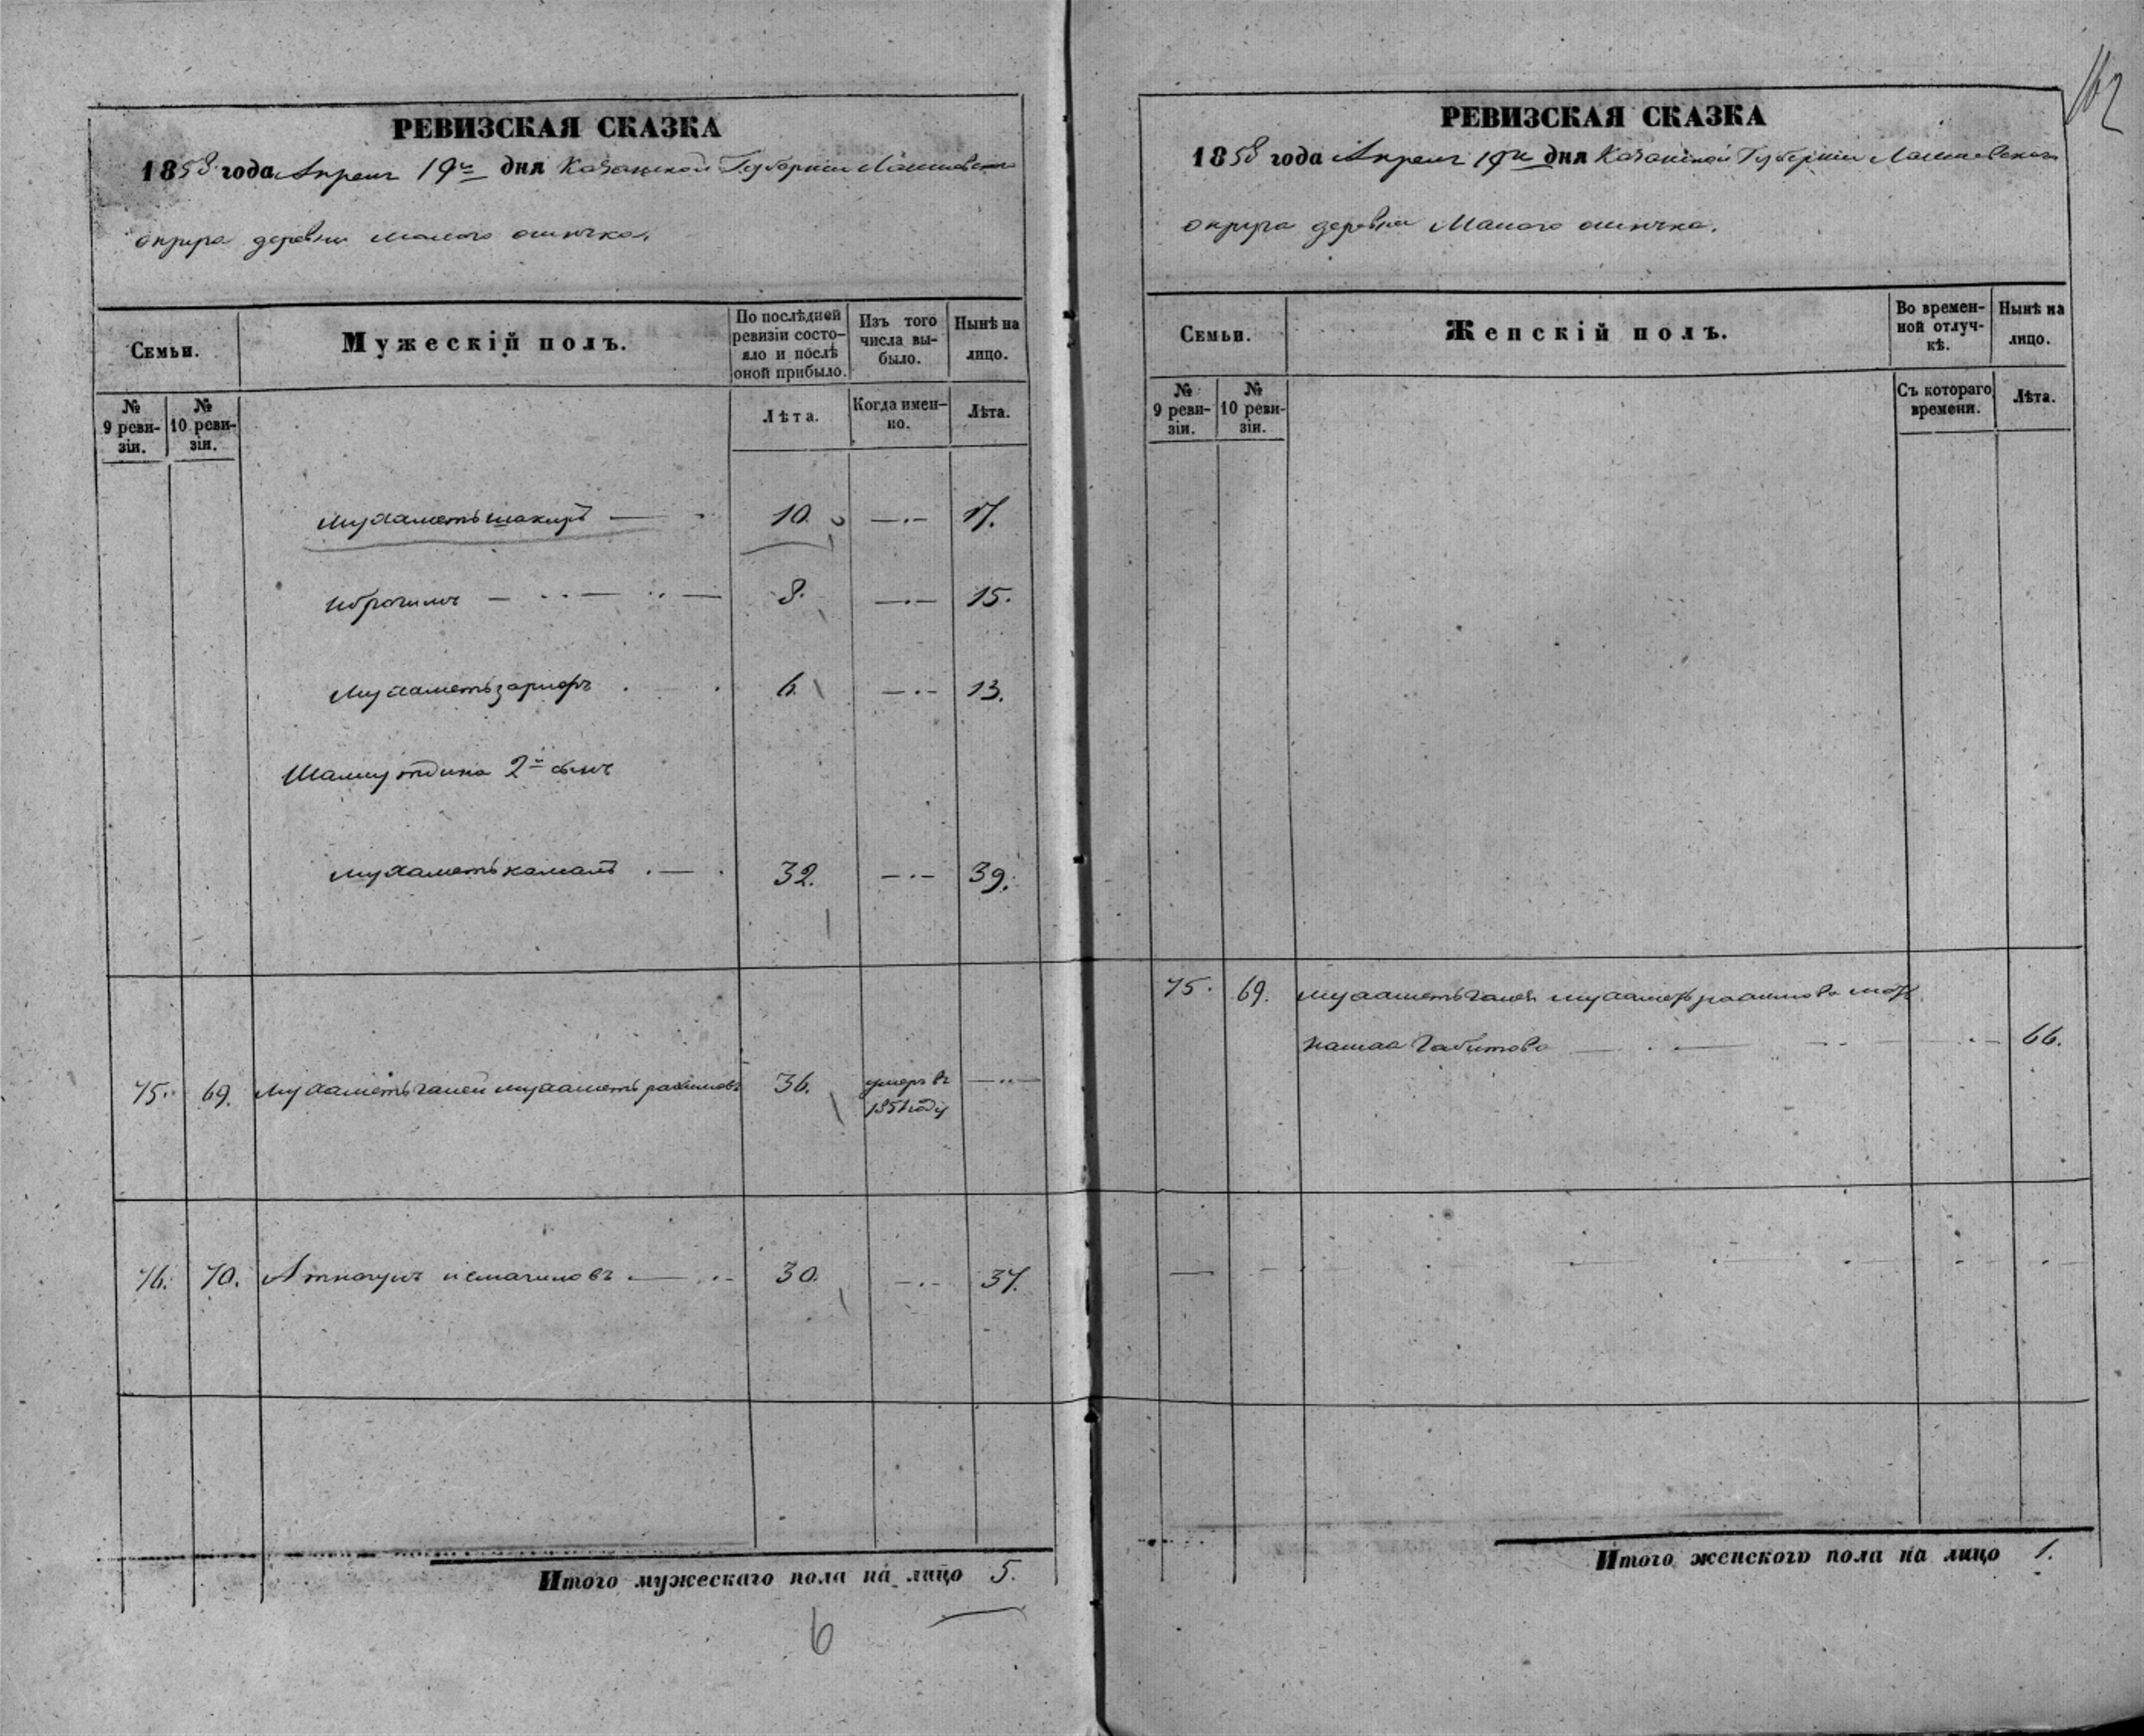 162
РЕВИЗСКАЯ СКАЗКА
1858 года Апреля 19го дня Казанской Губернии Лаишевского
округа деревни Малого ошняка.
Семьи.
Мужескій полъ.
По послѣдней ревизіи состояло и послѣ оной прибыло.
Изъ того числа выбыло.
Нынѣ на лицо.
№ 9 ревизіи.
№ 10 ревизіи.
Лѣта.
Когда именно.
Лѣта.
Мухаметьшакиръ 10. 17.
Ибрагимъ 8. 15.
Мухаметьзарифъ 6. 13.
Шамутдина 2й сынъ
Мухаметькамалъ 32. 39.
75. 69. Мухаметьгалей Мухаметьрахимовъ 36. умеръ въ
1851 году
76. 70. исмагиловъ 30. 37.
Итого мужескаго пола на лицо 5.
6
РЕВИЗСКАЯ СКАЗКА
1858 года Апреля 19го дня Казанской Губернии Лаишевского
округа деревни Малого ошняка.
Семьи.
Женскій полъ.
Во временной отлучкѣ.
Нынѣ на лицо.
№ 9 ревизіи.
№ 10 ревизіи.
Съ котораго времени.
Лѣта.
75. 69. Мухаметьгалея Мухаметьрахимова
Габитова 66.
Итого женского пола на лицо 1.